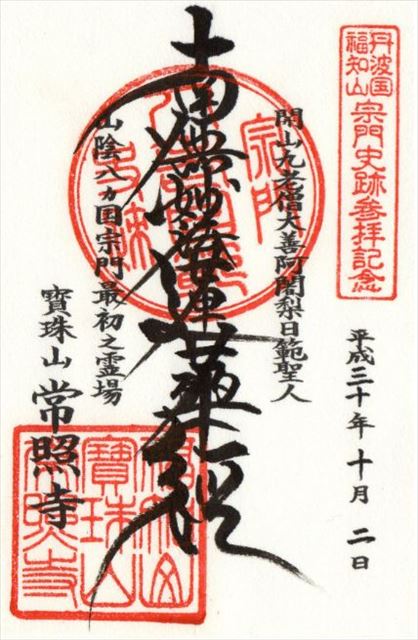 丹波国
福知山
宗門史跡參拝記念
平成三十年十月二日
開山九老僧大善阿闍梨日範聖人
南無妙法蓮華経
山陰八ヵ国宗門最初之霊場
寶珠山 常照寺
宗門
福知山
寶珠山
常照寺